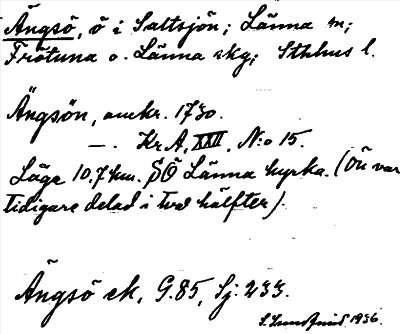 Ängsö, ö i Saltsjön; Länna sn;
Frötuna o. Länna skg; Sthlms l.
Ängsön, omkr. 1730.
—. Kr A, XXII, N:o 15.
Läge 10.7 km. SÖ Länna kyrka. (Ön var
tidigare delad i två hälfter).
Ängsö ek, G.85, Sj: 233.
S. Lundqvist. 1936.